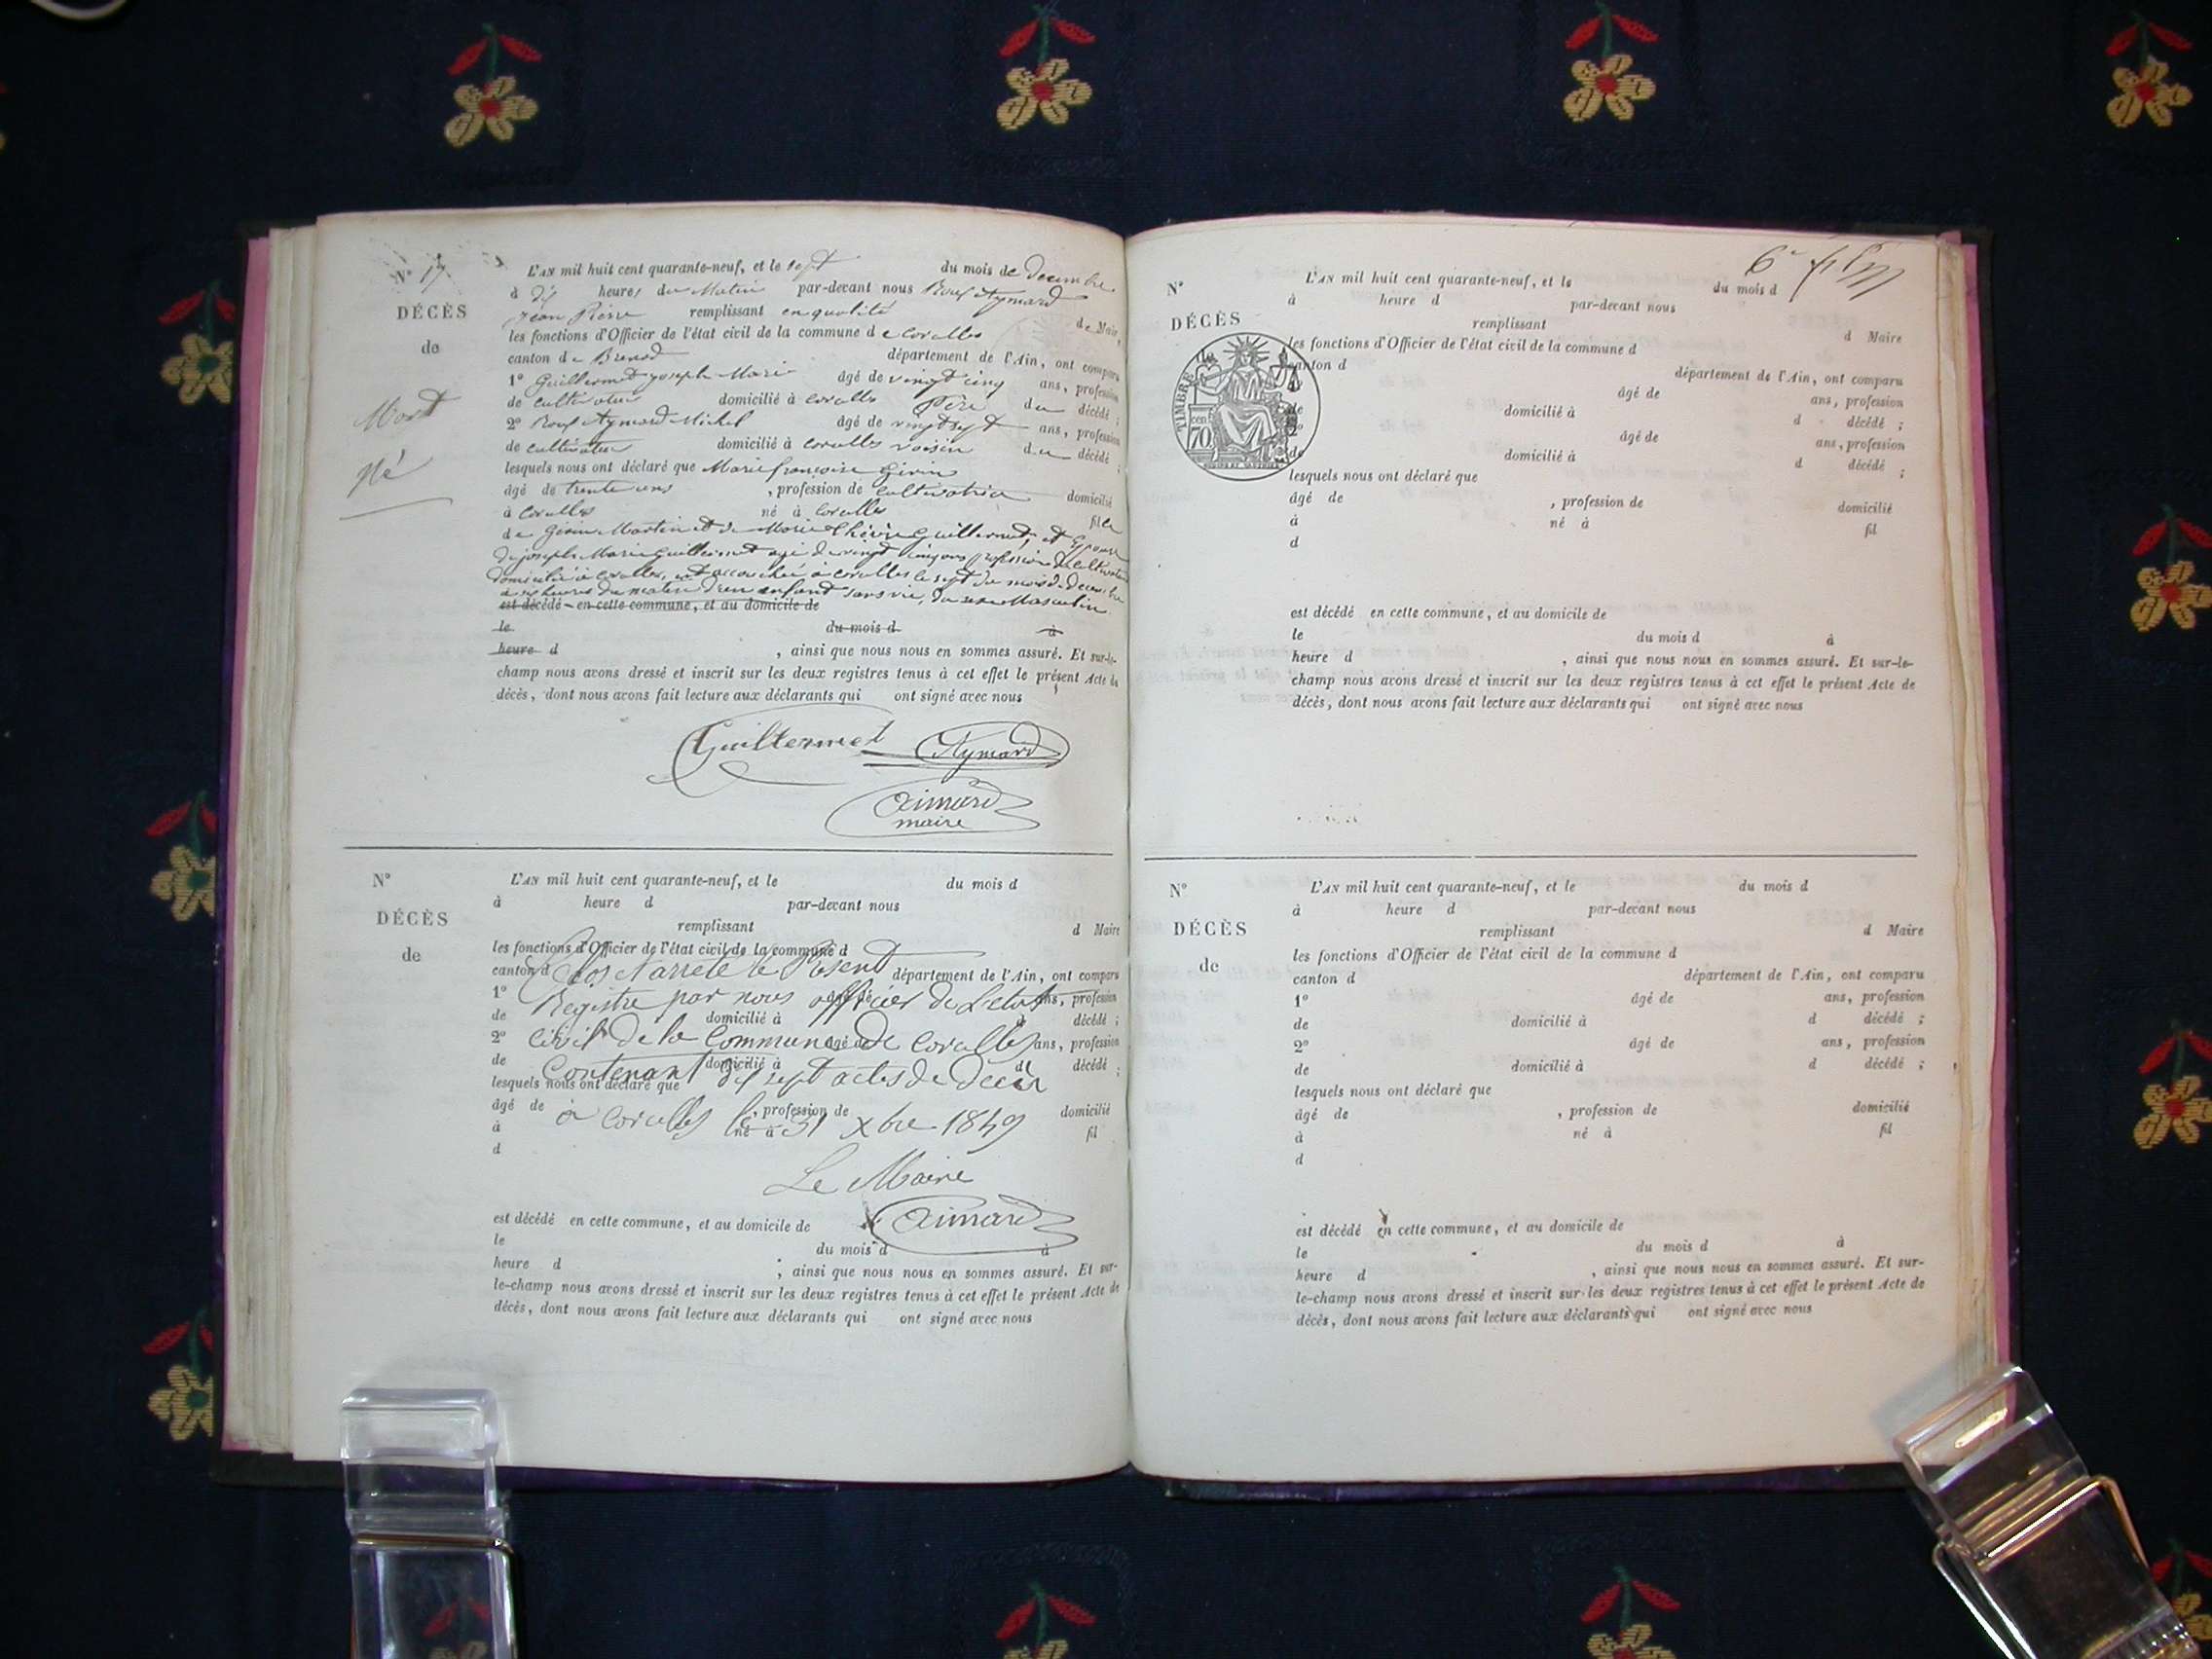 N° 17
DÉCÈS
de
Mort
Né
L'AN mil huit cent quarante-neuf, et le sept du mois de Decembre
à dix heures du Matin par-devant nous Roux Aymard
Jean Pierre remplissant en qualité de Maire
les fonctions d'Officier de l'état civil de la commune de Corcelles
canton de Brenod département de l'Ain, ont comparu
1° Guillermet joseph Marie âgé de vingt cinq ans, profession
de cultivateur domicilié à Corcelles Père du décédé ;
2° Roux Aymard Michel âgé de vingt sept ans, profession
de cultivateur domicilié à Corcelles voisin du décédé ;
lesquels nous ont déclaré que Marie françoise Girin
âgé de trente ans , profession de cultivatrice domicilié
à Corcelles né à Corcelles fille
de Girin Martin et de Marie Guillermet, et Epouse
de joseph Marie Guillermet agé de vingt cinq ans profession de cultivateur
domicilié à Corcelles, est accouchée à Corcelles le sept du mois de Decembre
à six heures du matin d'un enfant sans vie, du sexe Masculin
est décédé en cette commune, et au domicile de
le du mois d à
heure d , ainsi que nous nous en sommes assuré. Et sur-le-
champ nous avons dressé et inscrit sur les deux registres tenus à cet effet le présent Acte de
décès, dont nous avons fait lecture aux déclarants qui ont signé avec nous
Guillermet Aymard
aimard
maire
N°
DÉCÈS
de
L'AN mil huit cent quarante-neuf, et le du mois d
à heure d par-devant nous
remplissant d Maire
les fonctions d'Officier de l'état civil de la commune d
canton d département de l'Ain, ont comparu
Clos et arrêté le Présent
1° âgé de ans, profession
Registre par nous officier de L'etat
de domicilié à d décédé ;
2° âgé de ans, profession
civil de la Commune de Corcelles
de domicilié à d décédé ;
Contenant dix sept actes de Decès
lesquels nous ont déclaré que
âgé de , profession de domicilié
à Corcelles le 31 Xbre 1849
à né à fil
d
Le Maire
aimard
est décédé en cette commune, et au domicile de
le du mois d à
heure d , ainsi que nous nous en sommes assuré. Et sur-
le-champ nous avons dressé et inscrit sur les deux registres tenus à cet effet le présent Acte de
décès, dont nous avons fait lecture aux déclarants qui ont signé avec nous
6e
N°
DÉCÈS
TIMBRE
70 cen
L'AN mil huit cent quarante-neuf, et le du mois d
à heure d par-devant nous
remplissant d Maire
les fonctions d'Officier de l'état civil de la commune d
canton d département de l'Ain, ont comparu
âgé de ans, profession
de domicilié à d décédé ;
2° âgé de ans, profession
de domicilié à d décédé ;
lesquels nous ont déclaré que
âgé de , profession de domicilié
à né à fil
d
est décédé en cette commune, et au domicile de
le du mois d à
heure d , ainsi que nous nous en sommes assuré. Et sur-le-
champ nous avons dressé et inscrit sur les deux registres tenus à cet effet le présent Acte de
décès, dont nous avons fait lecture aux déclarants qui ont signé avec nous
N°
DÉCÈS
de
L'AN mil huit cent quarante-neuf, et le du mois d
à heure d par-devant nous
remplissant d Maire
les fonctions d'Officier de l'état civil de la commune d
canton d département de l'Ain, ont comparu
1° âgé de ans, profession
de domicilié à d décédé ;
2° âgé de ans, profession
de domicilié à d décédé ;
lesquels nous ont déclaré que
âgé de , profession de domicilié
à né à fil
d
est décédé en cette commune, et au domicile de
le du mois d à
heure d , ainsi que nous nous en sommes assuré. Et sur-
le-champ nous avons dressé et inscrit sur les deux registres tenus à cet effet le présent Acte de
décès, dont nous avons fait lecture aux déclarants qui ont signé avec nous